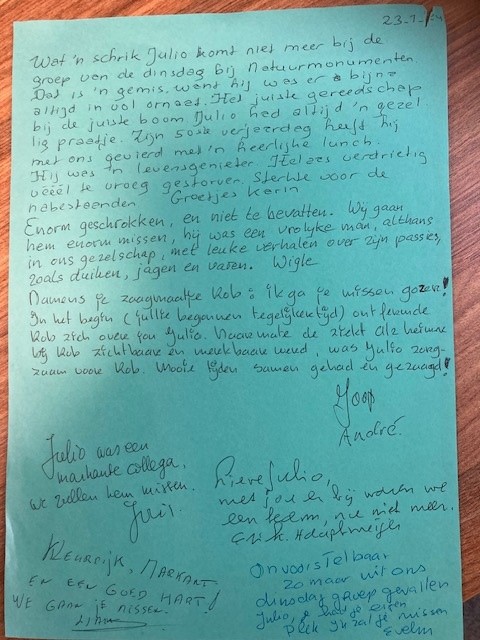 23-1-24
Wat 'n schrik Julio komt niet meer bij de
groep van de dinsdag bij Natuurmonumenten.
Dat is 'n gemis. want hij was er bijna
altijd in vol ornaat. Het juiste gereedschap
bij de juiste boom. Julio had altijd 'n gezel
lig praatje. Zijn 50ste verjaardag heeft hij
met ons gevierd met 'n heerlijke lunch.
Hij was 'n levensgenieter. Helaas verdrietig
vééél te vroeg gestorven. Sterkte voor de
nabestaanden Groetjes Karin
Enorm geschrokken, en niet te bevatten. Wij gaan
hem enorm missen, hij was een vrolijke man, althans
in ons gezelschap, met leuke verhalen over zijn passies,
zoals duiken, jagen en varen. Wigle
Namens je zaagmaatje Rob: ik ga je missen gozer!
In het begin (jullie begonnen tegelijkertijd) ontfermde
Rob zich over jou Julio. Naarmate de ziekte Alzheimer
bij Rob zichtbaar en merkbaar werd, was Julio zorg-
zaam voor Rob. Mooie tijden samen gehad en gezaagd!
Joop
André.
Julio was een
markante collega,
we zullen hem missen.
Lieve Julio,
met jou er bij waren we
een team, nu niet meer.
Kleurrijk, Markant
en een goed hart!
We gaan je missen.
Onvoorstelbaar
zo maar uit ons
dinsdag groep gevallen
Julio, je had je eigen
plek ik zal je missen